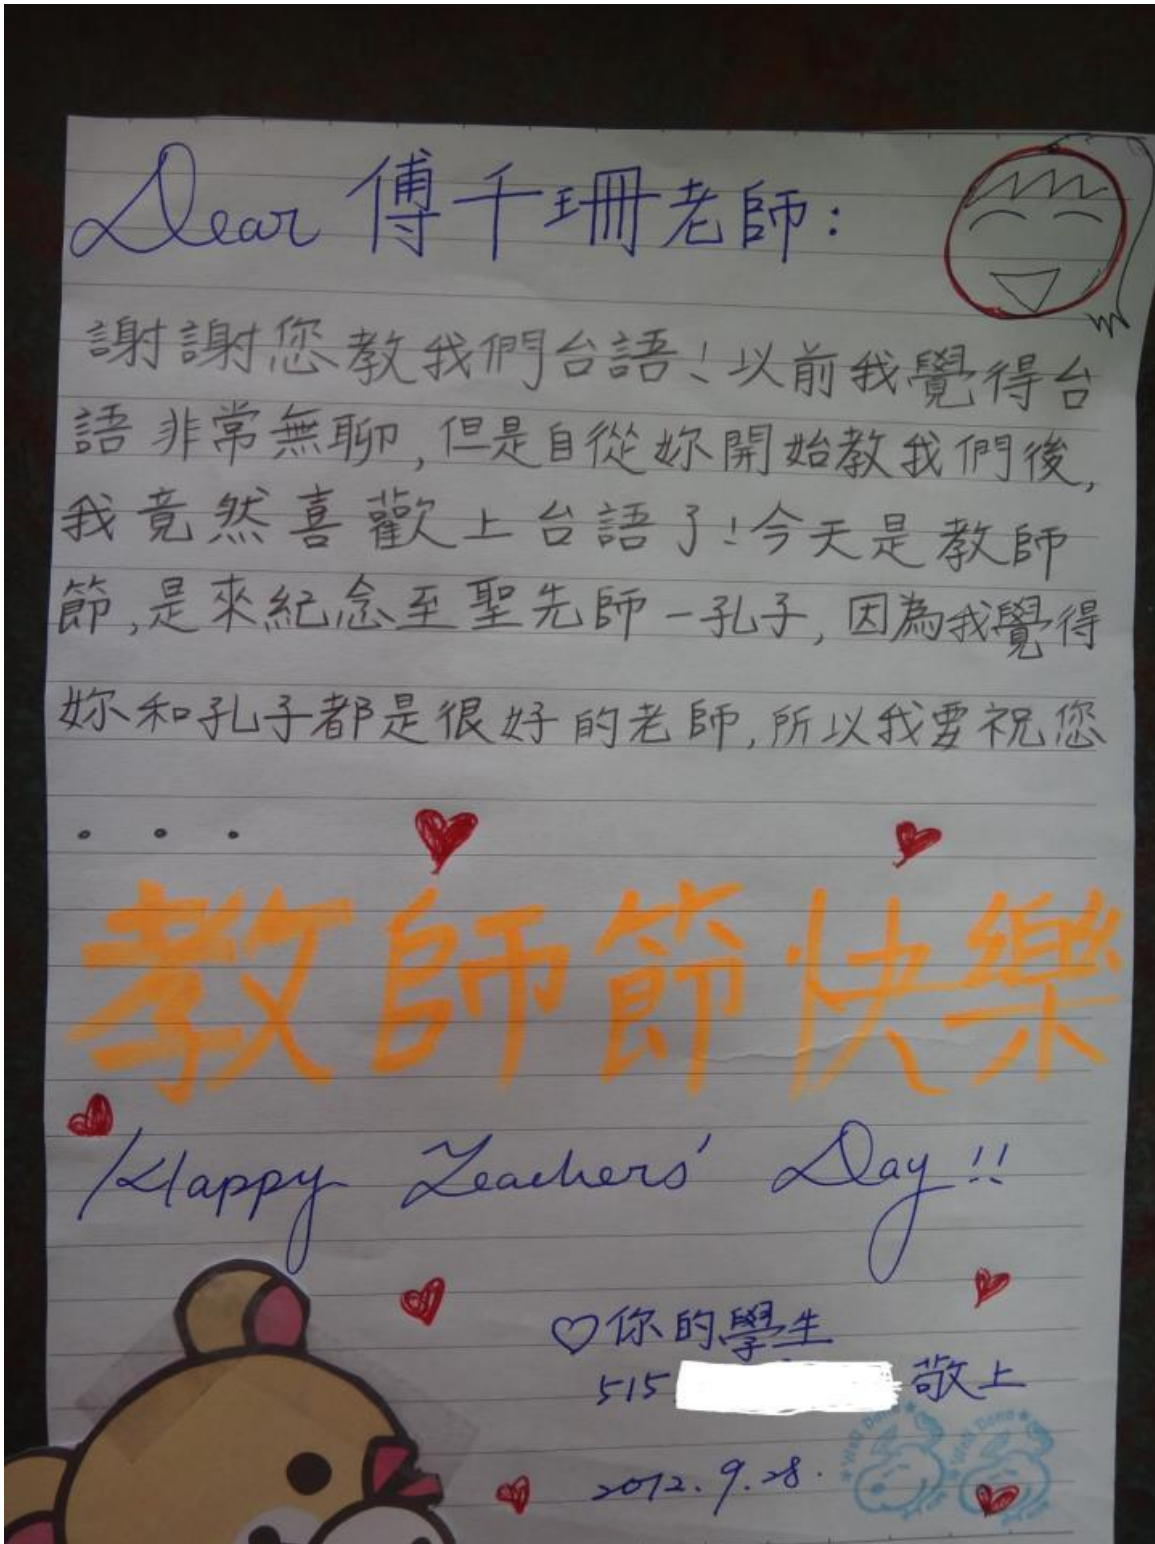 Dear 傅千珊老師:
謝謝您教我們台語!以前我覺得台
語非常無聊,但是自從妳開始教我們後,
我竟然喜歡上台語了!今天是教師
節,是來紀念至聖先師－孔子,因為我覺得
妳和孔子都是很好的老師,所以我要祝您
...
教師節快樂
Happy Teachers' Day!!
♡你的學生
515 敬上
2012.9.28.
Well Done Well Done